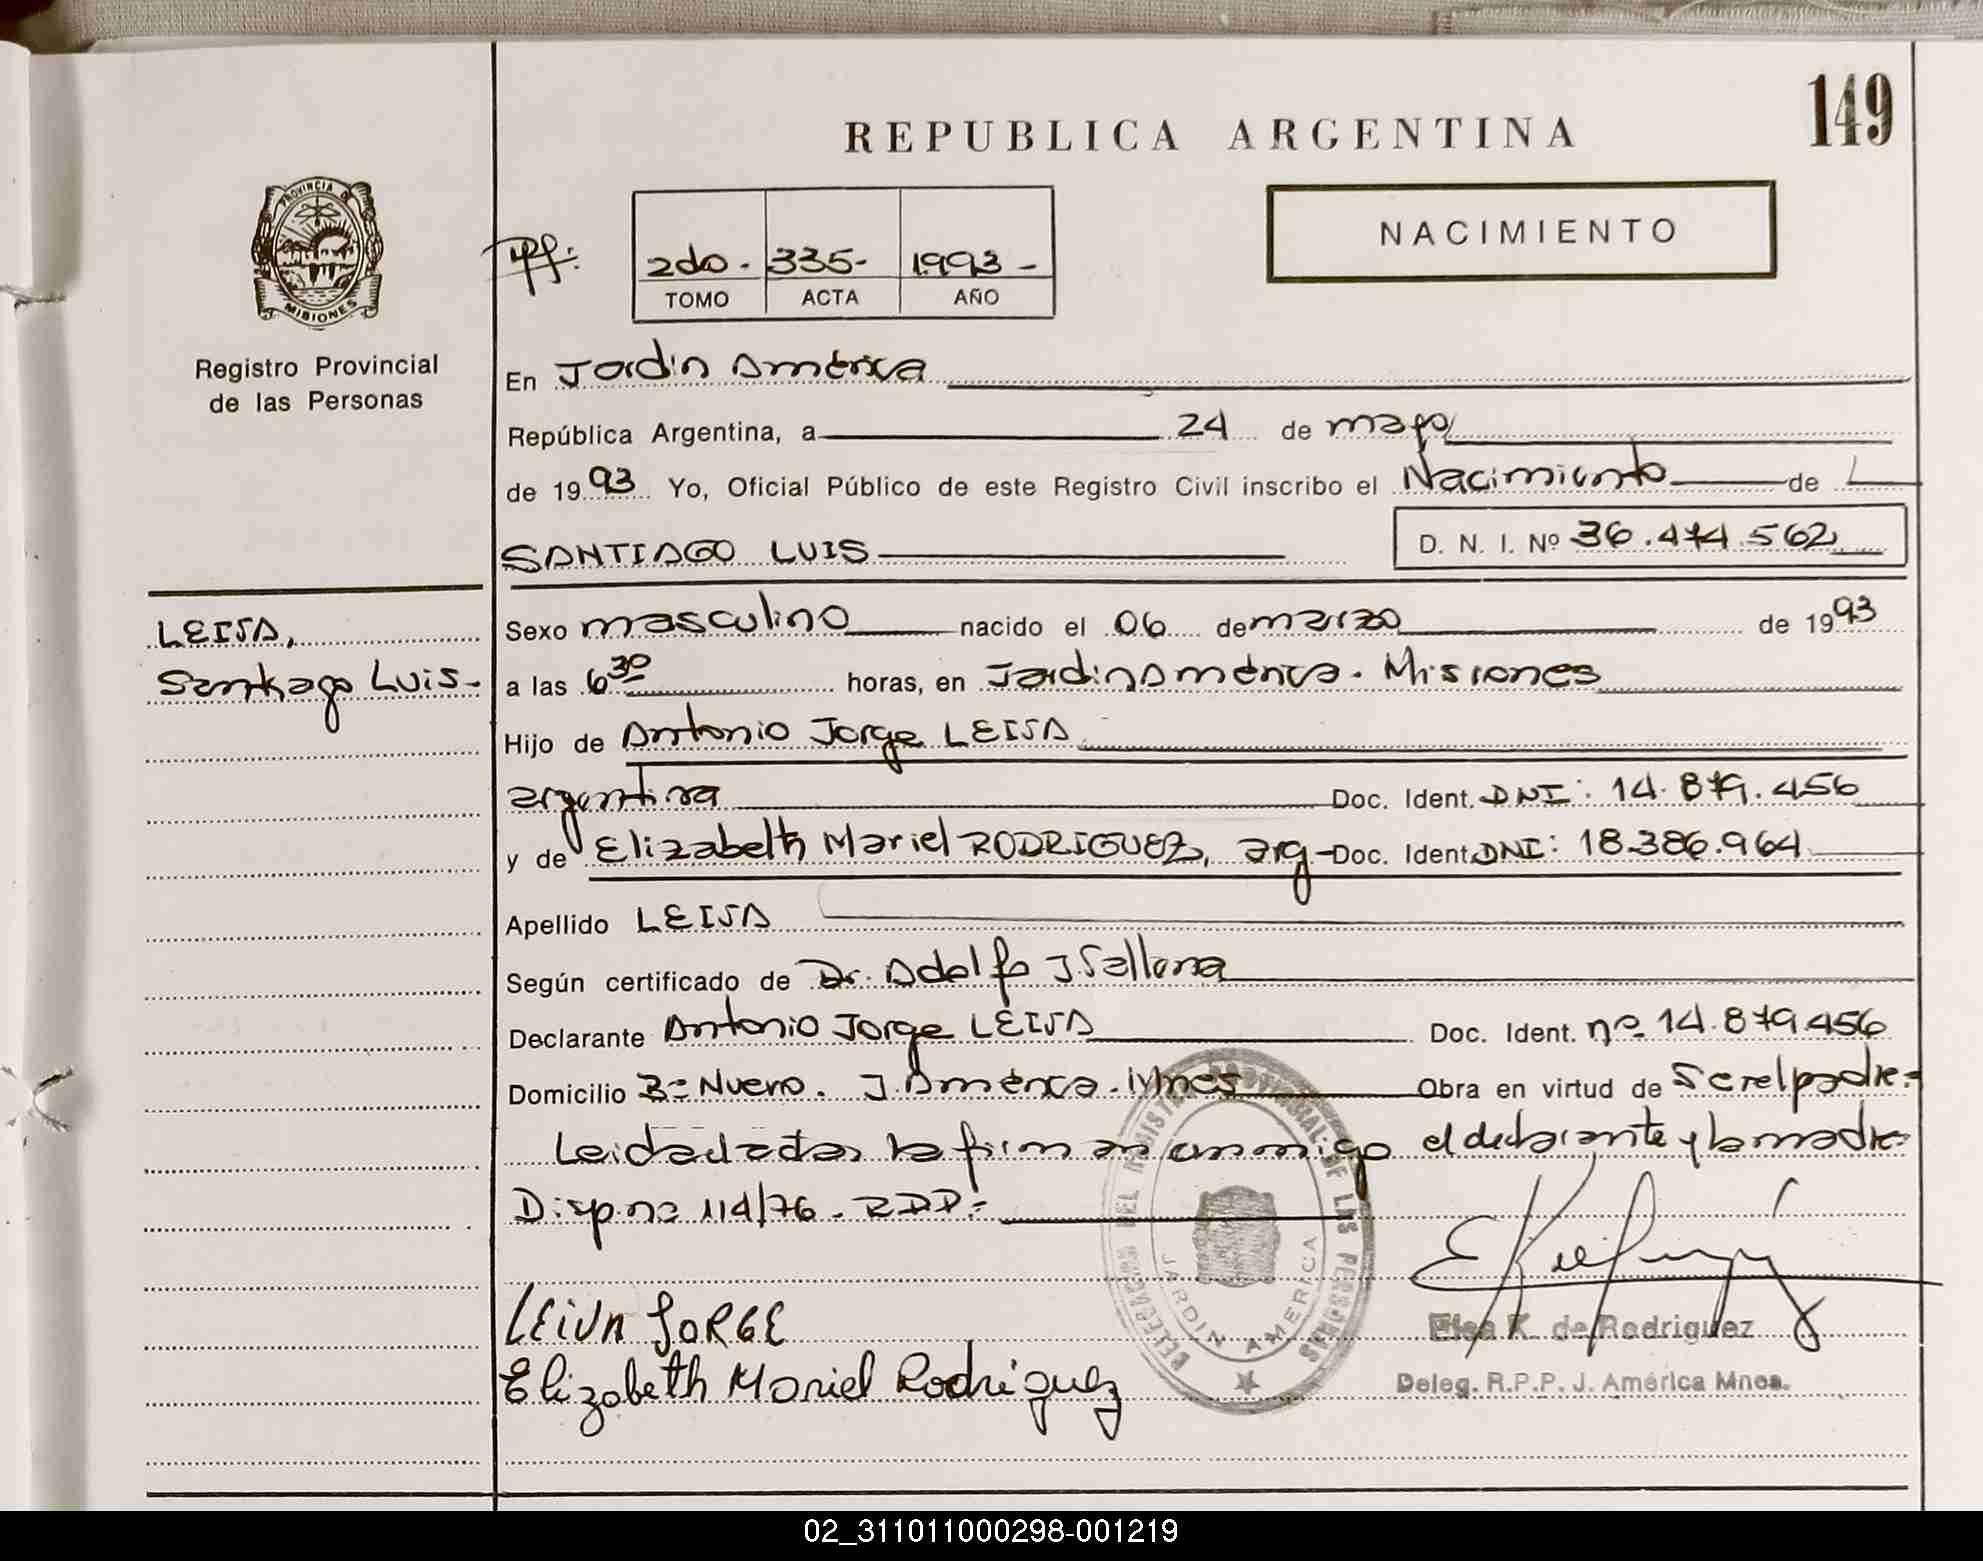 149
REPUBLICA ARGENTINA
PROVINCIA DE
MISIONES
Registro Provincial
de las Personas
2do. 335- 1993-
TOMO ACTA AÑO
NACIMIENTO
En Jardin América
República Argentina, a 24 de mayo
de 1993 Yo, Oficial Público de este Registro Civil inscribo el Nacimiento de
SANTIAGO LUIS D. N. I. Nº 36.474.562
LEIVA,
Santiago Luis-
Sexo masculino nacido el 06 de marzo de 1993
a las 6 30 horas, en Jardin América. Misiones
Hijo de Antonio Jorge LEIVA
argentina Doc. Ident. DNI: 14.879.456
y de Elizabeth Mariel RODRIGUEZ, arg- Doc. Ident. DNI: 18.386.964
Apellido LEIVA
Según certificado de Dr. Adolfo J.
Declarante Antonio Jorge LEIVA Doc. Ident. nº 14.879.456
Domicilio Bº Nuevo. J. América. Mnes Obra en virtud de Ser el padre.-
Leida el acta la firman conmigo el declarante y la madre-
Disp nº 114/76. RPP.-
DELEGACION DEL REGISTRO PROVINCIAL DE LAS PERSONAS
JARDIN AMERICA
LEIVA JORGE
Elsa K. de Rodriguez
Elizabeth Mariel Rodriguez
Deleg. R.P.P. J. América Mnes.
02_311011000298-001219